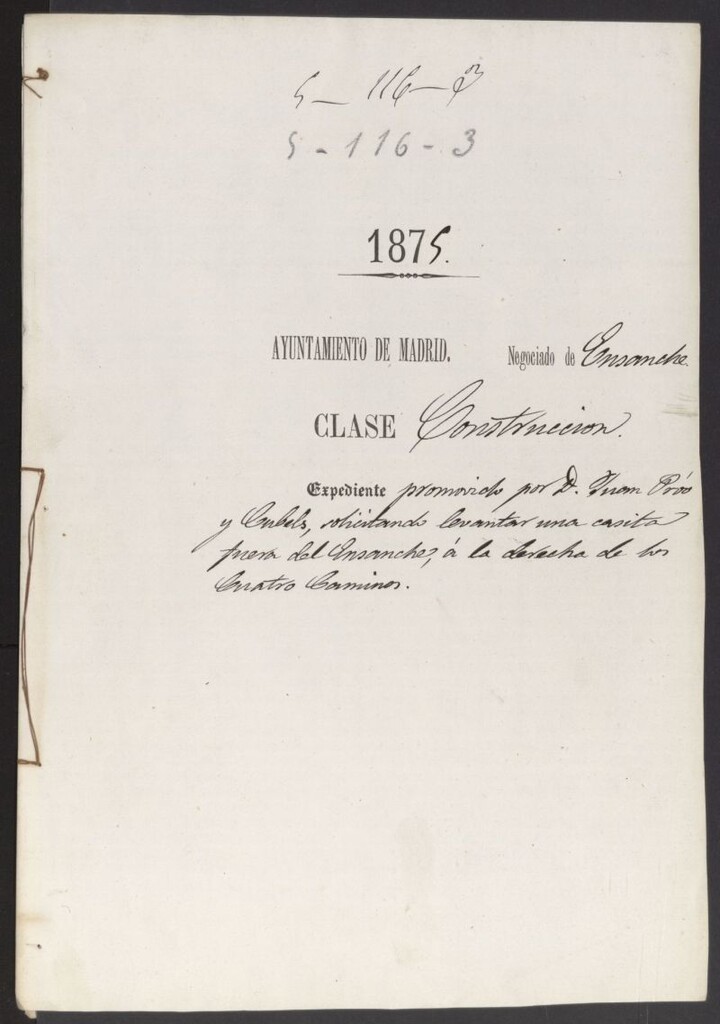 5 - 116 - 3
5 - 116 - 3
1875.
AYUNTAMIENTO DE MADRID. Negociado de Ensanche.
CLASE Construccion.
Expediente promovido por D. Juan Próo
y Cubels, solicitando levantar una casita
fuera del Ensanche, á la derecha de los
Cuatro Caminos.